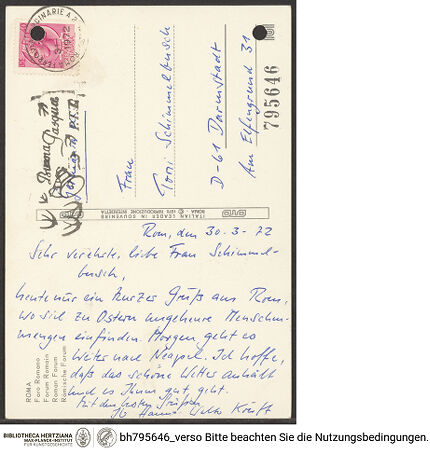 ORDINARIE
1972
795646
Frau
Toni Schimmelbusch
D-61 Darmstadt
Am Elfengrund 31
Buona Pasqua
OTO
ITALIAN LEADER IN SOUVENIRS
ROMA RIPRODUZIONE INTERDETTA
OTO
ROMA
Foro Romano
Forum Romain
Roman Forum
Römische Forum
Rom, den 30-3-72
Sehr verehrte, liebe Frau Schimmel-
busch,
heute nur ein kurzes Gruß aus Rom,
wo sich zu Ostern ungeheure Menschen-
mengen einfinden. Morgen geht es
weiter nach Neapel. Ich hoffe,
daß das schöne Wetter anhält
und es Ihnen gut geht.
Mit den besten Grüßen
Ihr Kruft
BIBLIOTHECA HERTZIANA
MAX-PLANCK-INSTITUT
FÜR KUNSTGESCHICHTE
bh795646_verso Bitte beachten Sie die Nutzungsbedingungen.